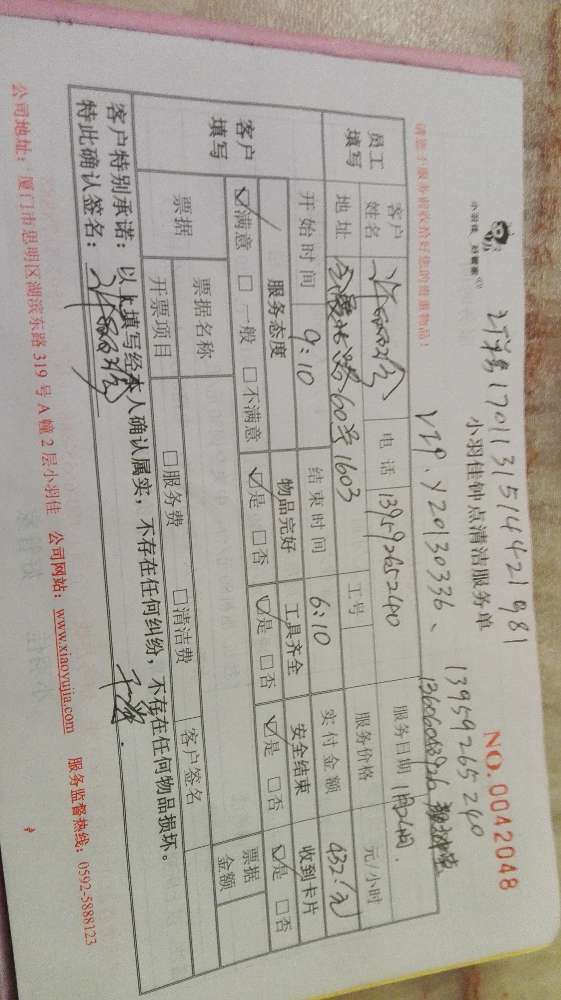 NO.0042048
小羽佳钟点清洁服务单
1701131514421981
VIP.Y20130336、
13959265240
请您于服务前收拾好您的贵重物品！
员工填写
客户姓名 电话 13959265240 服务日期
地址 60号1603 工号 服务价格 元/小时
开始时间 9:10 结束时间 6:10 实付金额 432.元
客户填写
服务态度 物品完好 工具齐全 安全结束 收到卡片
☑满意 □一般 □不满意 ☑是 □否 ☑是 □否 ☑是 □否 ☑是 □否
票据 票据名称 票据金额
开票项目 □服务费 □清洁费 客户签名
客户特别承诺：以上填写经本人确认属实，不存在任何纠纷，不存在任何物品损坏。
特此确认签名：
公司地址：厦门市思明区湖滨东路 319 号 A 幢 2 层小羽佳 公司网站：www.xiaoyujia.com 服务监督热线：0592-5888123